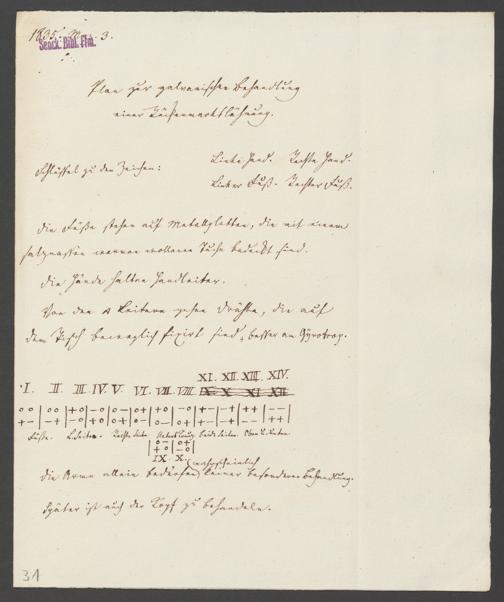 1835. M 3.
Senck. Bibl. Ffm.
Plan zur galvanischen Behandlung
einer Rückenmarkslähmung.
Schlüssel zu den Zeichen:
Linke Hand. Rechte Hand.
Linker Fuß. Rechter Fuß.
Die Füße stehen auf Metallplatten, die mit einem
salznassen warmen wollenen Tuche bedeckt sind.
Die Hände halten Handleiter.
Von den 4 Leitern gehen Drähte, die auf
dem Tisch beweglich fixirt sind, besser am Gyrotrop.
XI. XII. XIII. XIV.
I. II. III. IV. V. VI. VII. VIII. IX X XI XII
o o | o o | + o | - o | o + | o + | + o | - o | + - | - + | + + | - - |
Füße. Rechte Seite. beide Seiten. Oben u. Unten.
IX. X.
(wahrscheinlich
Die Arme allein bedürfen keiner besonderen Behandlung.
Später ist auch der Kopf zu behandeln.
31